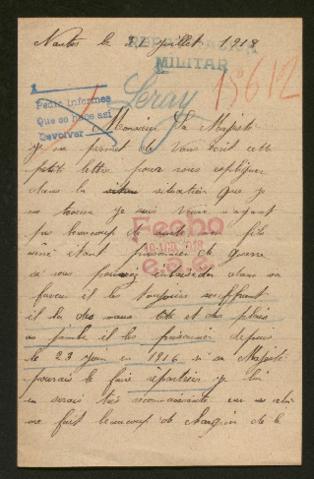 Nantes le 21 juillet 1918
REPATRIACION
MILITAR
Leray
19612
Pedir informes
Que se hace asi
Devolver
Monsieur Sa Majesté
je me permet de vous écrit cette
petite lettre pour vous expliquer
dans la situation que je
me trouve je suis veuve ayant
pas beaucoup de santé mon fils
ainé étant prisonnier de guerre
si vous pouvez intercéder dans sa
faveur il les toujours souffrant
il a des maux tête et des plaies
au jambe il les prisonnier depuis
le 23 juin en 1916 si sa Majesté
pourais le faire répatrier je lui
en serais très reconnaissante car sa
me fait beaucoup de chagrin de le
Fecho
18